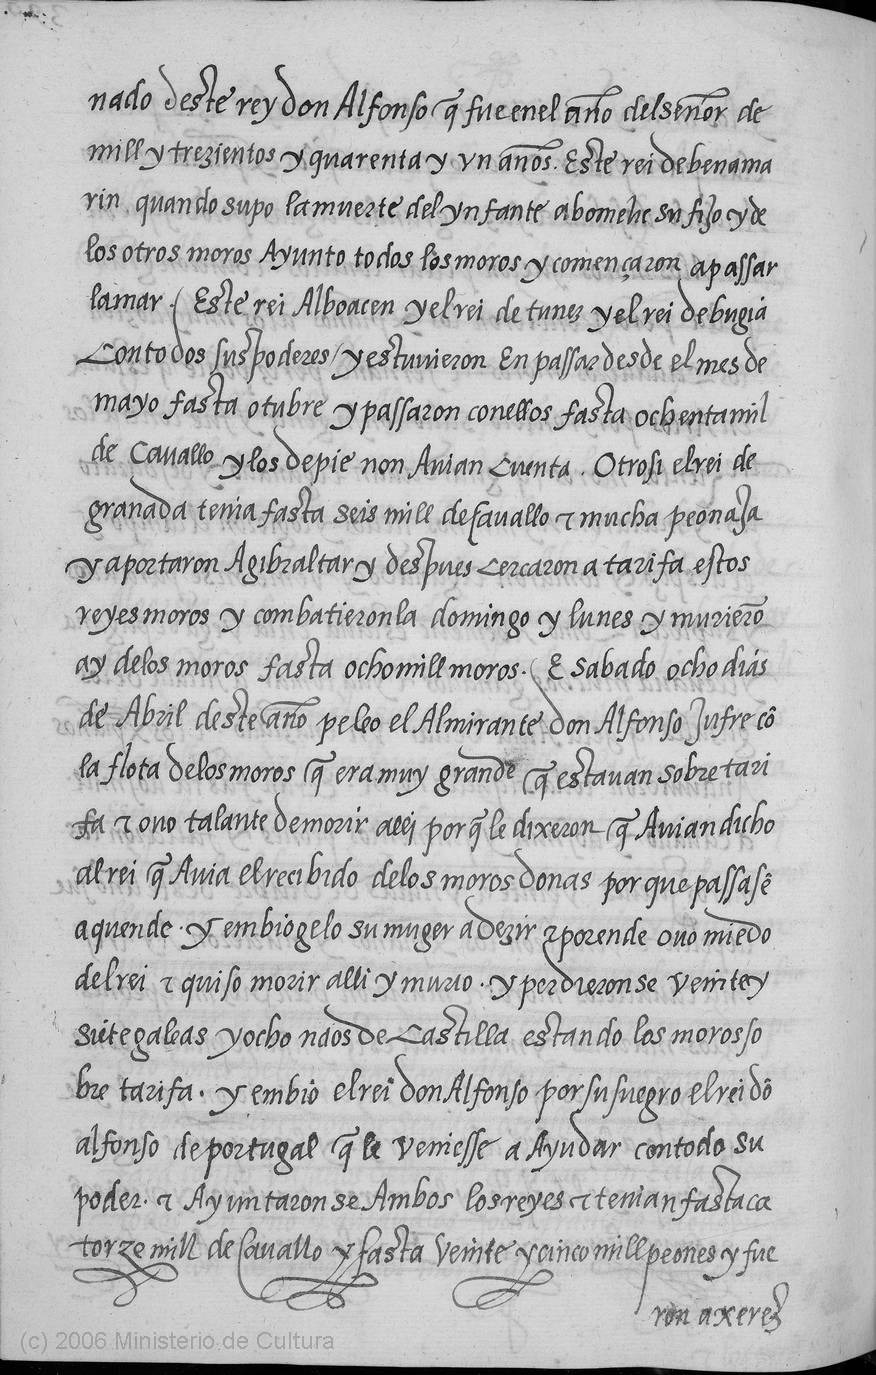 nado deste rey don Alfonso q̃ fue enel año delseñor de
mill y trezientos y quarenta y vn años. Este rei debenama
rin quando supo la muerte del ynfante abomelic su fijo y de
los otros moros Ayunto todos los moros y començaron apassar
lamar. ( Este rei Alboacen y el rei de tunez y el rei de bugia
Con todos sus poderes / y estuuieron En passar desde el mes de
mayo fasta otubre y passaron conellos fasta ochentamil
de Cavallo y los depie non Avian Cuenta. Otrosi el rei de
granada tenia fasta seis mill de Cavallo & mucha peonaja
y aportaron A gibraltar y despues Cercaron a tarifa estos
reyes moros y combatieronla domingo y lunes y murierõ
ay delos moros fasta ochomill moros. ( E sabado ocho dias
de Abril deste año peleo el Almirante don Alfonso Jufre cõ
la flota delos moros q̃ era muy grande q̃ estauan sobre tari
fa & ouo talante demorir alli porq̃ le dixeron q̃ Avian dicho
al rei q̃ Avia el recibido delos moros donas por que passasẽ
aquende. y embiogelo su muger adezir & porende ouo miedo
del rei & quiso morir alli y murio. y perdieronse veinte y
siete galeas y ocho naos de Castilla estando los moros so
bre tarifa. y embio el rei don Alfonso por su suegro el rei dõ
alfonso de portugal q̃ le veniesse a Ayudar contodo su
poder. & Ayuntaronse Ambos los reyes & tenian fasta ca
torze mill de Cavallo y fasta Veinte y cinco mill peones y fue
ron a xerez
(c) 2006 Ministerio de Cultura